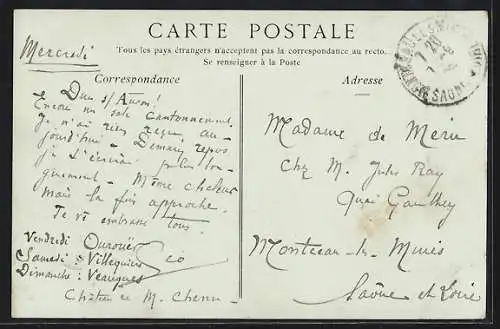 CARTE POSTALE
Tous les pays étrangers n'acceptent pas la correspondance au recto.
Se renseigner à la Poste
Correspondance
Adresse
Mercredi
Dun s/ Auron!
Encore un sale cantonnement.
Je n'ai rien reçu au-
jourd'hui - Demain repos
je t'écrirai plus lon-
guement - Même chaleur
mais la fin approche.
Je vs embrasse tous.
Vendredi Ourouër
Samedi : Villequiers
Dimanche : Veaugues
Château de M. Chenu
Madame de Meru
Chez M. Jules Ray
Quai Gauthey
Montceau-les-Mines
Saône et Loire